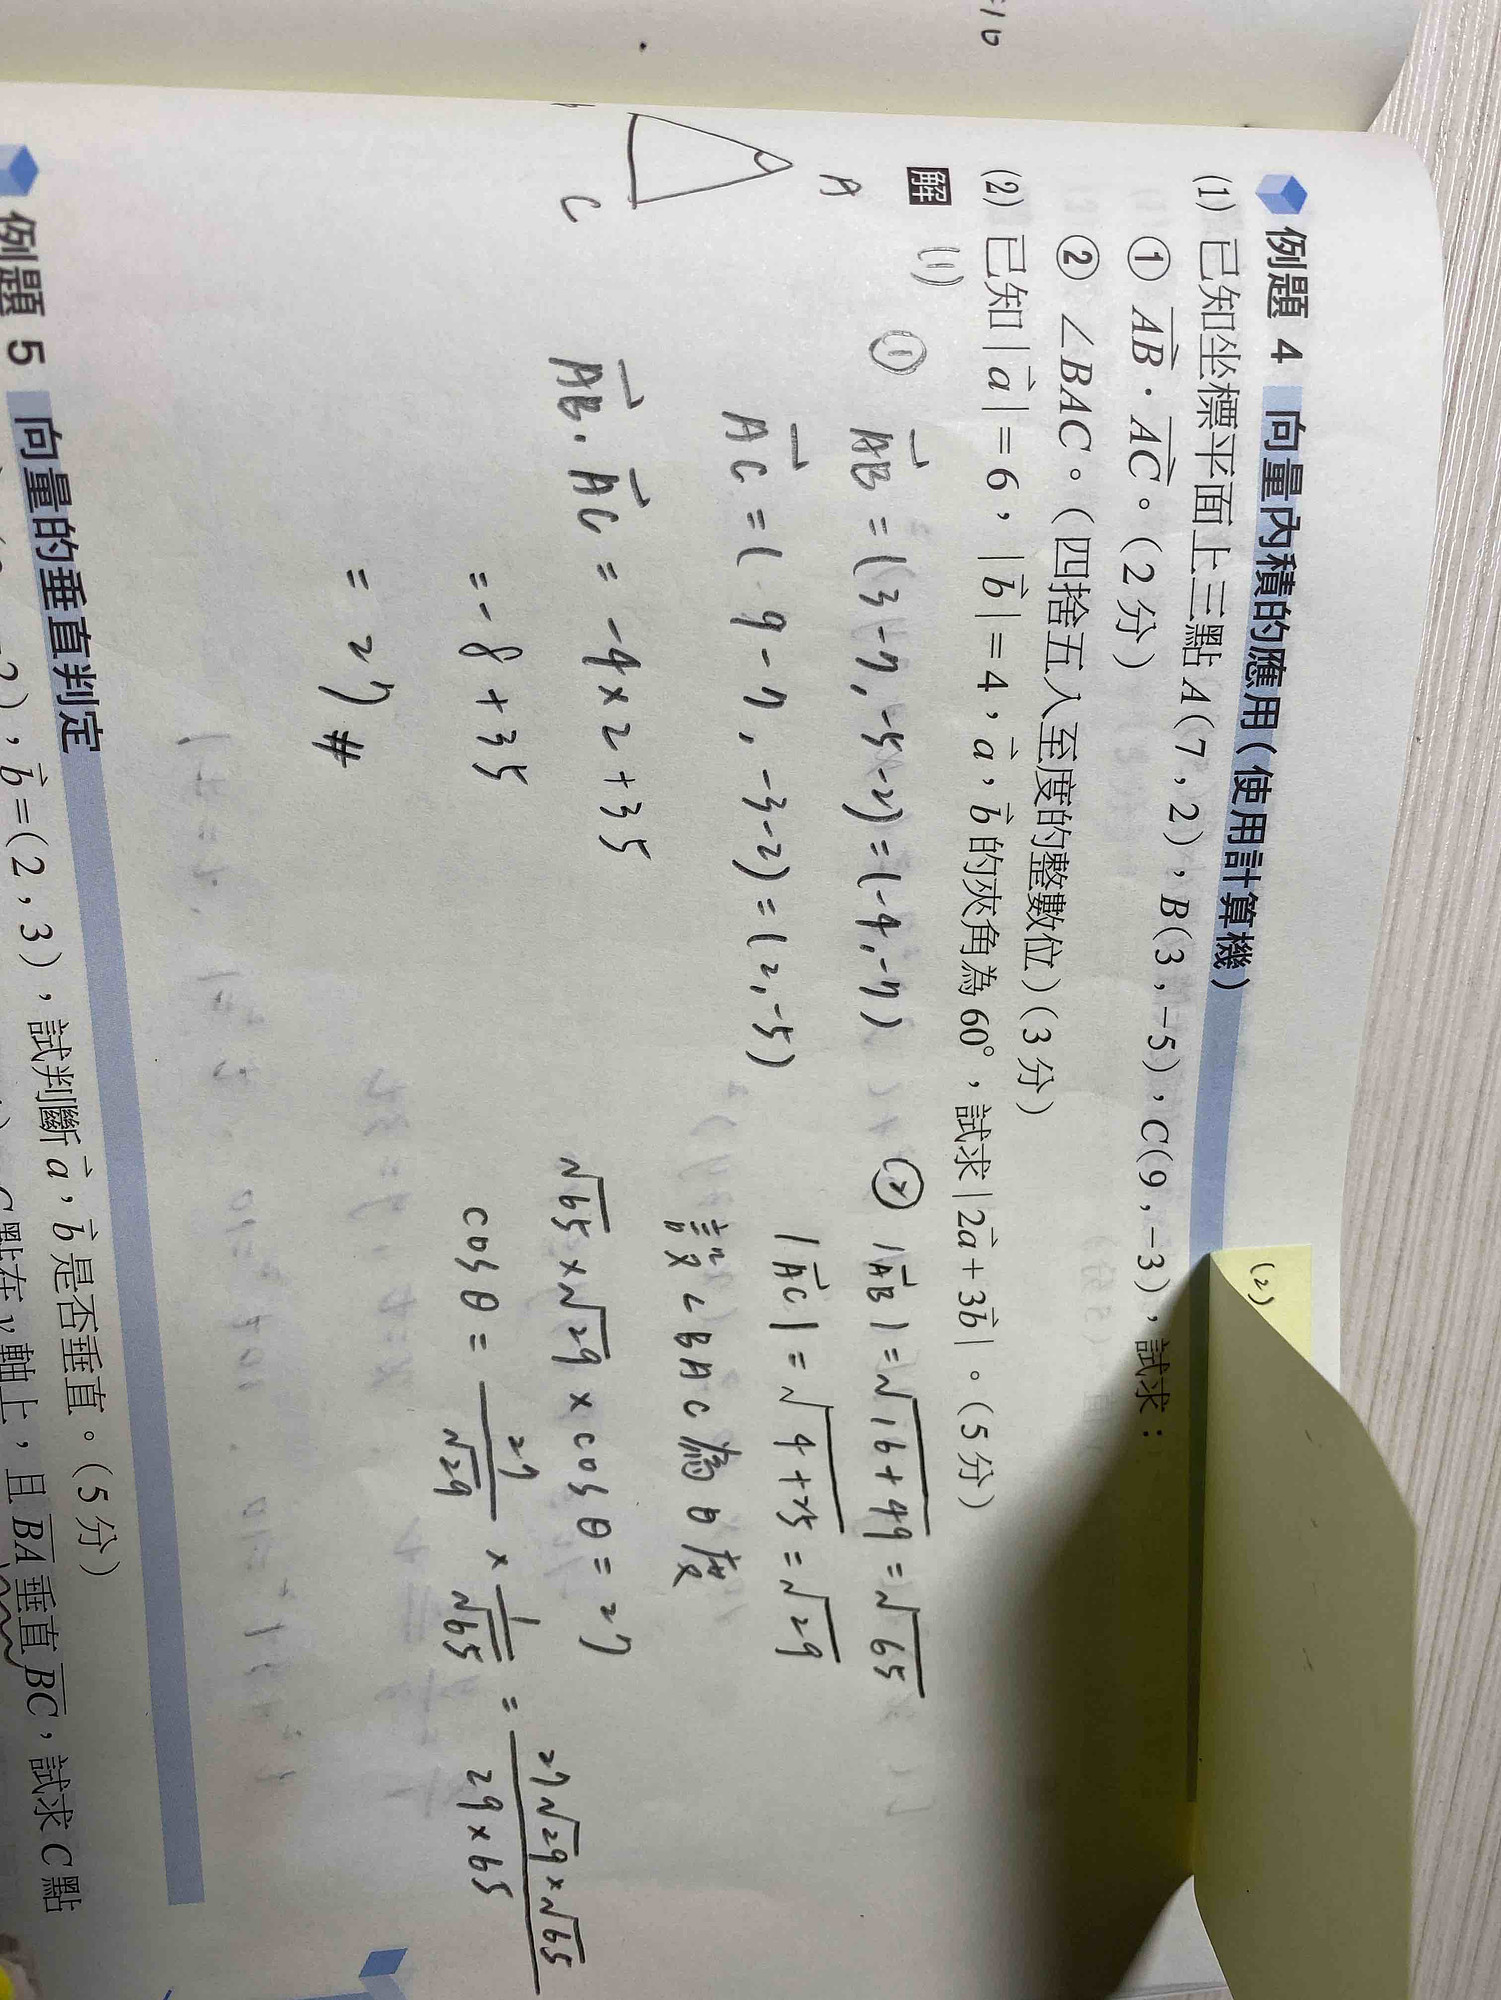 =16
例題 4 向量內積的應用(使用計算機)
(2)
(1) 已知坐標平面上三點 A(7,2),B(3,-5),C(9,-3),試求:
① AB⃗·AC⃗。(2分)
② ∠BAC。(四捨五入至度的整數位)(3分)
(2) 已知|a⃗|=6,|b⃗|=4,a⃗,b⃗的夾角為60°,試求|2a⃗+3b⃗|。(5分)
解 (1) ① AB⃗=(3-7,-5-2)=(-4,-7)
AC⃗=(9-7,-3-2)=(2,-5)
AB⃗·AC⃗=-4×2+35
=-8+35
=27#
② |AB⃗|=√16+49=√65
|AC⃗|=√4+25=√29
設∠BAC為θ度
√65×√29×cosθ=27
cosθ=27/√29×1/√65=27√29×√65/29×65
A
C
例題 5 向量的垂直判定
-2),b⃗=(2,3),試判斷a⃗,b⃗是否垂直。(5分)
C點在y軸上,且BA垂直BC,試求C點